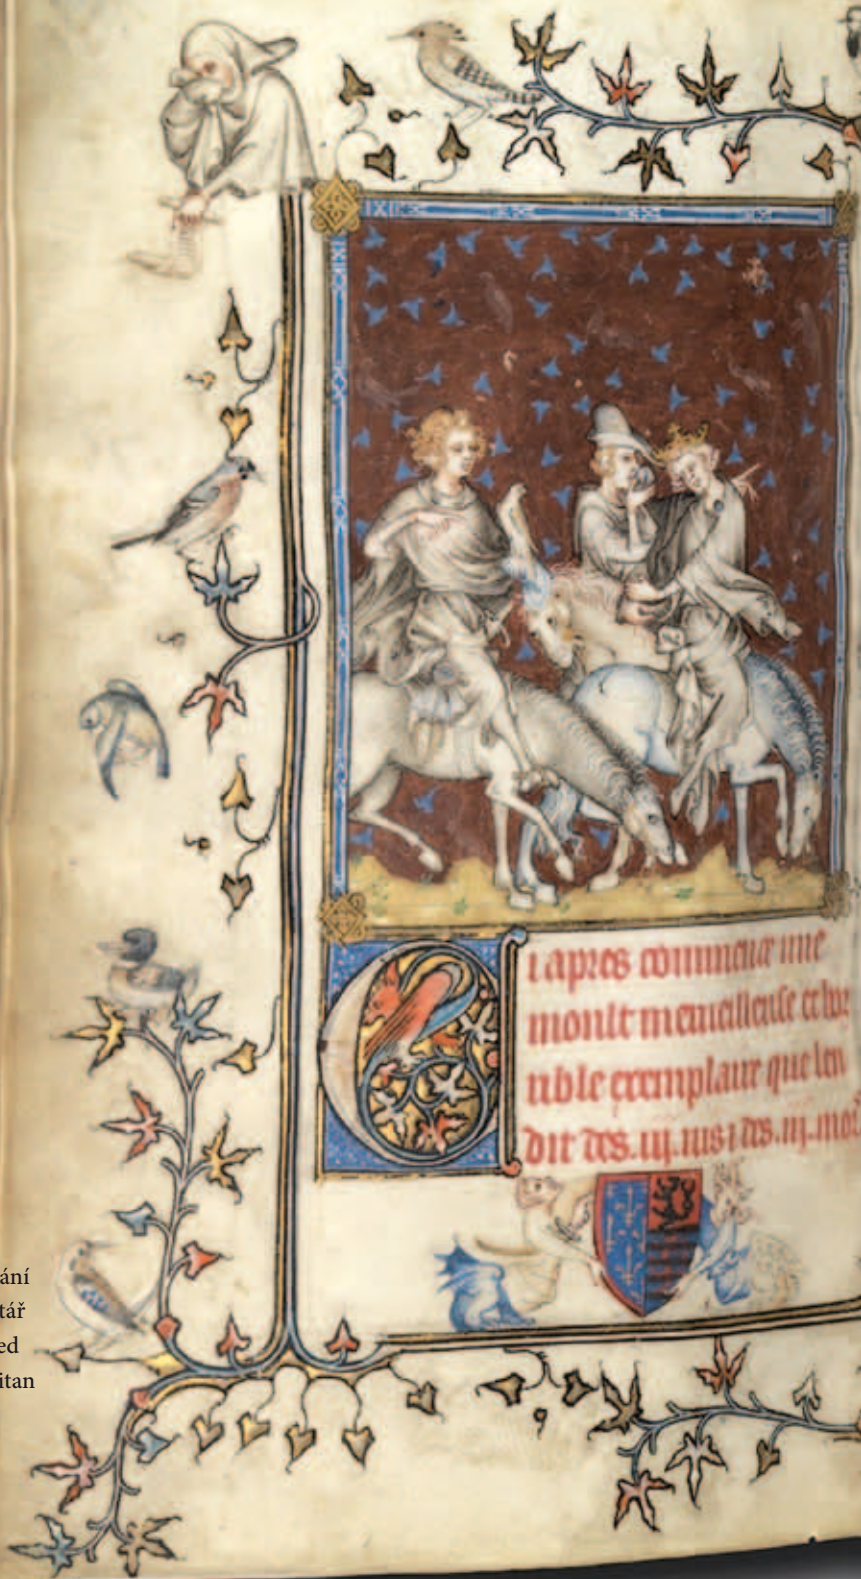 Ci apres commence une
moult merueilleuse et hor
rible exemplaire que len
dit des .iij. uis ⁊ des .iij. mor
ání
tář
ed
itan